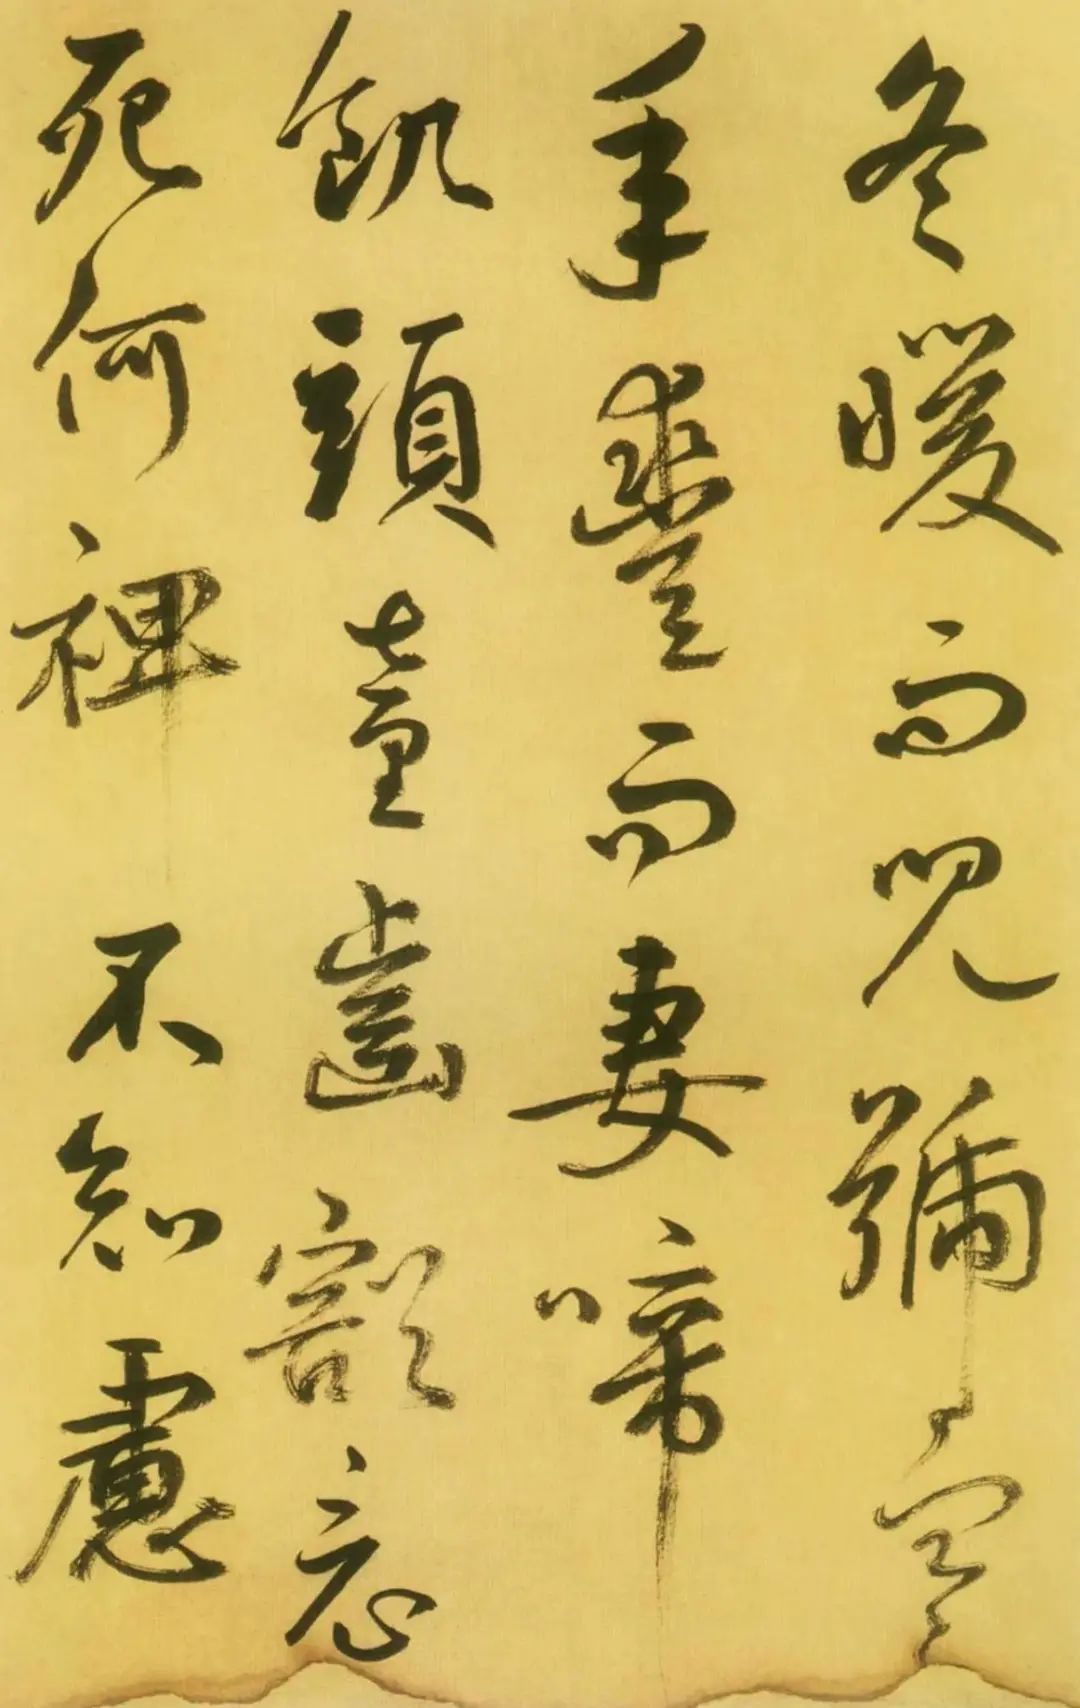 冬暖而兒號寒
年豐而妻啼
飢頭童齒豁竟
死何裨不知慮